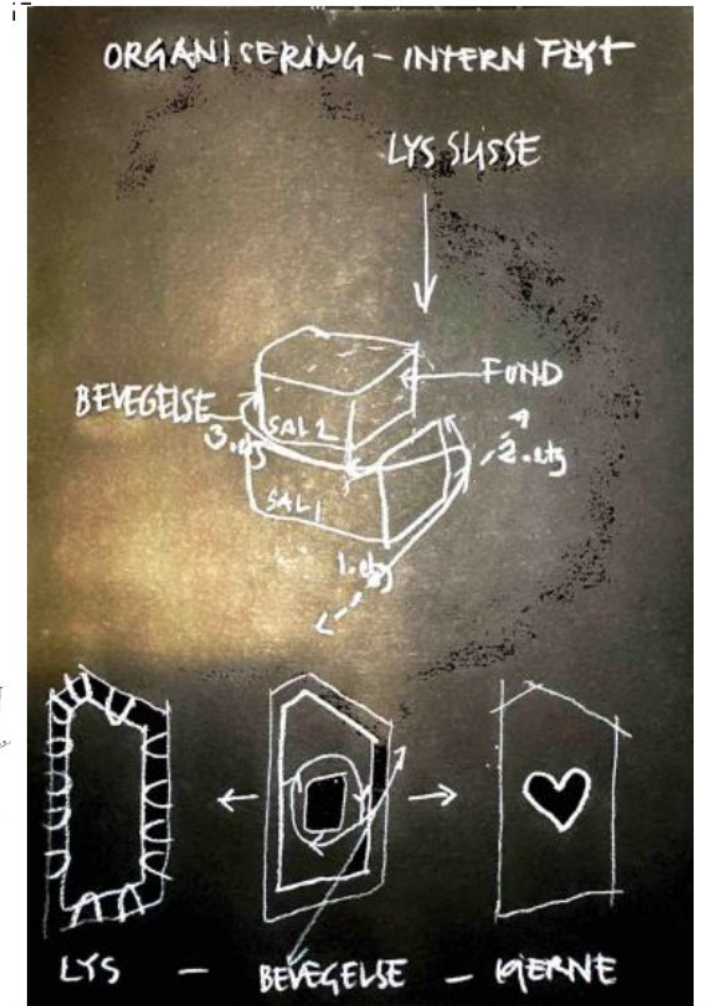 ORGANISERING - INTERN FLYT
LYS SLISSE
FOND
BEVEGELSE
SAL 2
3. etg
2. etg
SAL 1
1. etg
LYS - BEVEGELSE - KJERNE